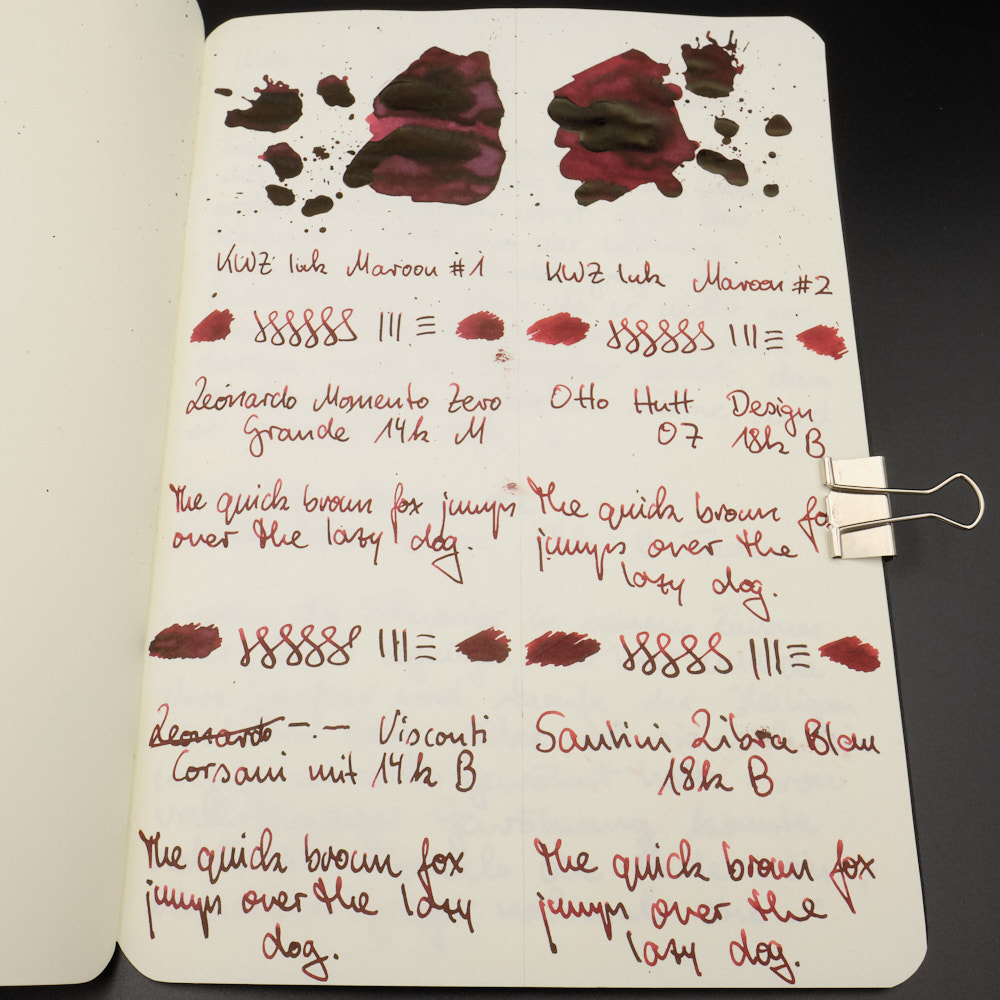 KWZ Ink Maroon #1
Leonardo Momento Zero
Grande 14k M
The quick brown fox jumps
over the lazy dog.
Leonardo -.- Visconti
Corsani mit 14k B
The quick brown fox
jumps over the lazy
dog.
KWZ Ink Maroon #2
Otto Hutt Design
07 18k B
The quick brown fox
jumps over the
lazy dog.
Santini Libra Blau
18k B
The quick brown fox
jumps over the
lazy dog.